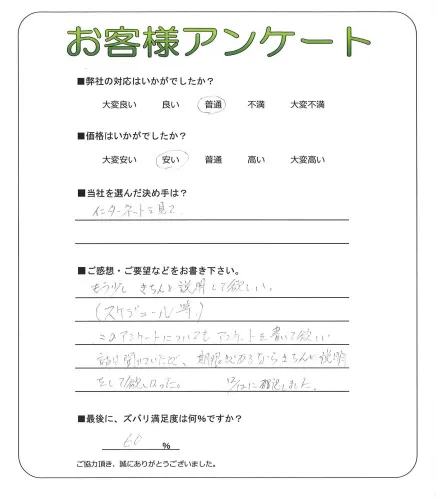 お客様アンケート
■弊社の対応はいかがでしたか？
大変良い 良い 普通 不満 大変不満
■価格はいかがでしたか？
大変安い 安い 普通 高い 大変高い
■当社を選んだ決め手は？
インターネットを見て
■ご感想・ご要望などをお書き下さい。
もう少し きちんと説明して欲しい。
(スケジュール等)
このアンケートについてもアンケートを書いて欲しい
話は聞いていたけど、期限があるならきちんと説明
をして欲しかった。 に確認しました。
■最後に、ズバリ満足度は何%ですか？
60 %
ご協力頂き、誠にありがとうございました。